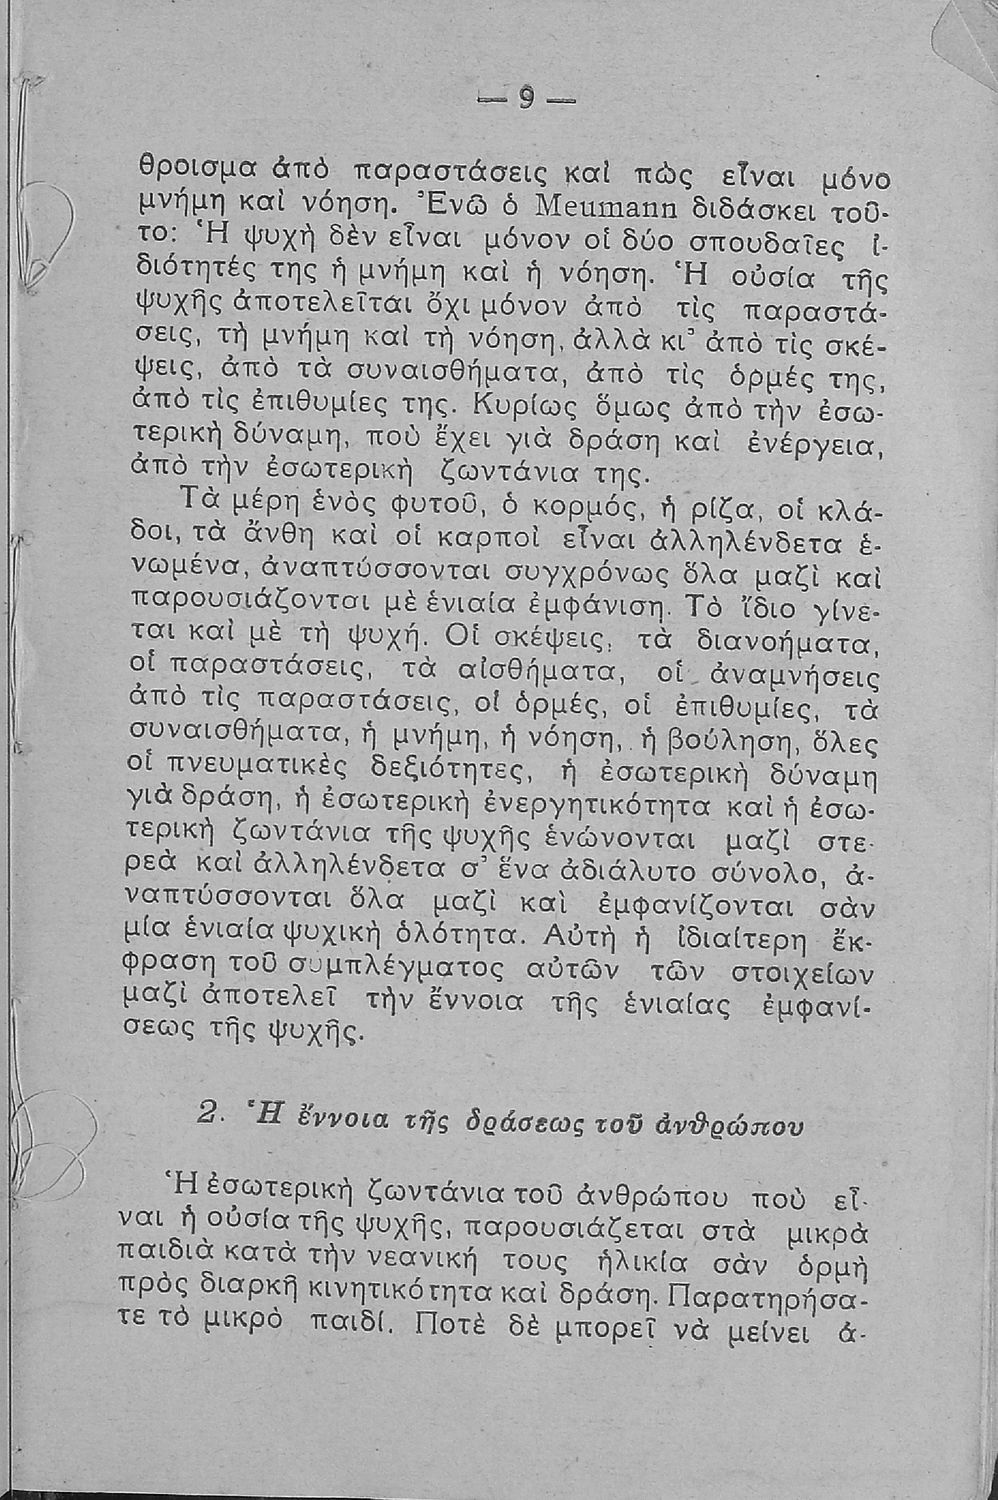 — 9 —
θροισμα ἀπὸ παραστάσεις καὶ πὼς εἶναι μόνο
μνήμη καὶ νόηση. Ἐνῶ ὁ Meumann διδάσκει τοῦ-
το: Ἡ ψυχὴ δὲν εἶναι μόνον οἱ δύο σπουδαῖες ἰ-
διότητές της ἡ μνήμη καὶ ἡ νόηση. Ἡ οὐσία τῆς
ψυχῆς ἀποτελεῖται ὄχι μόνον ἀπὸ τὶς παραστά-
σεις, τὴ μνήμη καὶ τὴ νόηση, ἀλλὰ κι᾽ ἀπὸ τὶς σκέ-
ψεις, ἀπὸ τὰ συναισθήματα, ἀπὸ τὶς ὁρμές της,
ἀπὸ τὶς ἐπιθυμίες της. Κυρίως ὅμως ἀπὸ τὴν ἐσω-
τερικὴ δύναμη, ποὺ ἔχει γιὰ δράση καὶ ἐνέργεια,
ἀπὸ τὴν ἐσωτερικὴ ζωντάνια της.
Τὰ μέρη ἑνὸς φυτοῦ, ὁ κορμός, ἡ ρίζα, οἱ κλά-
δοι, τὰ ἄνθη καὶ οἱ καρποὶ εἶναι ἀλληλένδετα ἑ-
νωμένα, ἀναπτύσσονται συγχρόνως ὅλα μαζὶ καὶ
παρουσιάζονται μὲ ἑνιαία ἐμφάνιση. Τὸ ἴδιο γίνε-
ται καὶ μὲ τὴ ψυχή. Οἱ σκέψεις, τὰ διανοήματα,
οἱ παραστάσεις, τὰ αἰσθήματα, οἱ ἀναμνήσεις
ἀπὸ τὶς παραστάσεις, οἱ ὁρμές, οἱ ἐπιθυμίες, τὰ
συναισθήματα, ἡ μνήμη, ἡ νόηση, ἡ βούληση, ὅλες
οἱ πνευματικὲς δεξιότητες, ἡ ἐσωτερικὴ δύναμη
γιὰ δράση, ἡ ἐσωτερικὴ ἐνεργητικότητα καὶ ἡ ἐσω-
τερικὴ ζωντάνια τῆς ψυχῆς ἑνώνονται μαζὶ στε-
ρεὰ καὶ ἀλληλένδετα σ᾽ ἕνα ἀδιάλυτο σύνολο, ἀ-
ναπτύσσονται ὅλα μαζὶ καὶ ἐμφανίζονται σὰν
μία ἑνιαία ψυχικὴ ὁλότητα. Αὐτὴ ἡ ἰδιαίτερη ἔκ-
φραση τοῦ συμπλέγματος αὐτῶν τῶν στοιχείων
μαζὶ ἀποτελεῖ τὴν ἔννοια τῆς ἑνιαίας ἐμφανί-
σεως τῆς ψυχῆς.
2. Ἡ ἔννοια τῆς δράσεως τοῦ ἀνθρώπου
Ἡ ἐσωτερικὴ ζωντάνια τοῦ ἀνθρώπου ποὺ εἶ-
ναι ἡ οὐσία τῆς ψυχῆς, παρουσιάζεται στὰ μικρὰ
παιδιὰ κατὰ τὴν νεανική τους ἡλικία σὰν ὁρμὴ
πρὸς διαρκῆ κινητικότητα καὶ δράση. Παρατηρήσα-
τε τὸ μικρὸ παιδί. Ποτὲ δὲ μπορεῖ νὰ μείνει ἀ-